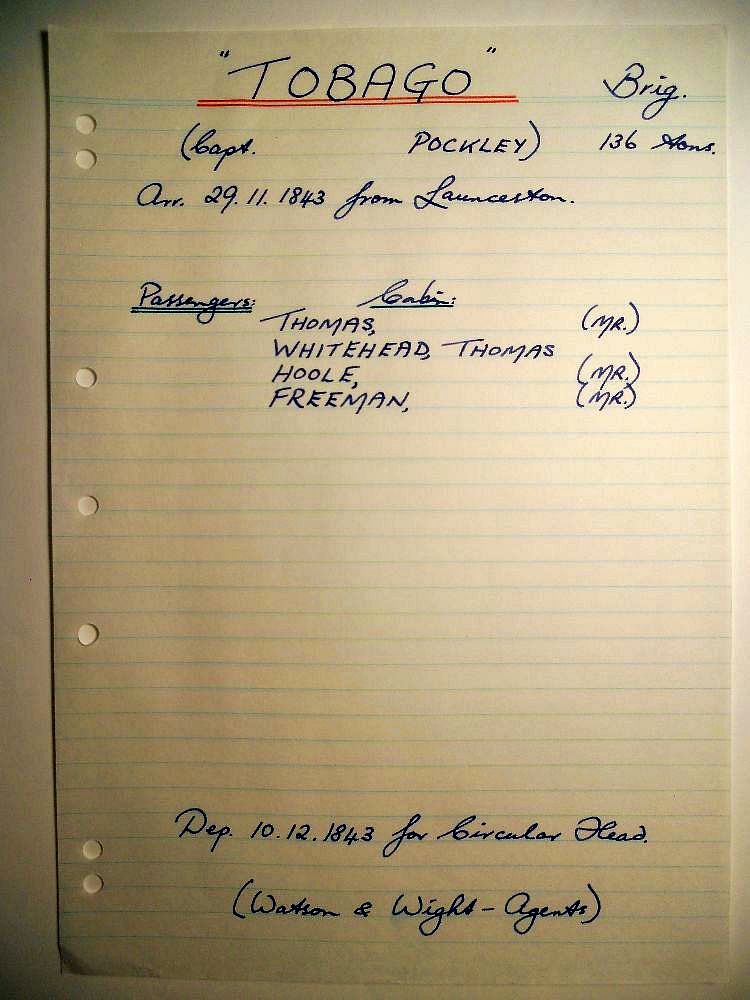 "TOBAGO" Brig.
(Capt. POCKLEY) 136 tons.
Arr. 29.11.1843 from Launceston.
Passengers: Cabin:
THOMAS, (MR.)
WHITEHEAD, THOMAS
HOOLE, (MR.)
FREEMAN, (MR.)
Dep. 10.12.1843 for Circular Head.
(Watson & Wight - Agents)